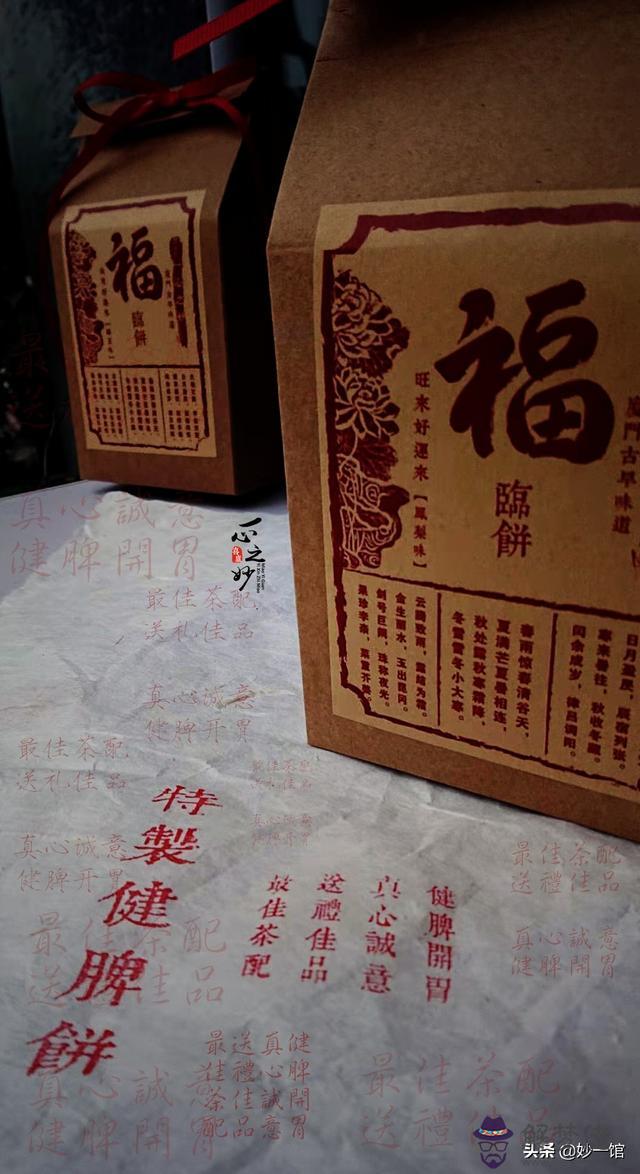 福
臨餅
福
臨餅
廈門古早味道
旺來好運來【鳳梨味】
日月盈昃,辰宿列张。
寒来暑往,秋收冬藏。
闰余成岁,律吕调阳。
春雨惊春清谷天,
夏满芒夏暑相连,
秋处露秋寒霜降,
冬雪雪冬小大寒。
云腾致雨,露结为霜。
金生丽水,玉出昆冈。
剑号巨阙,珠称夜光。
果珍李柰,菜重芥姜。
一心之妙
真心誠意
健脾開胃
最佳茶配,
送礼佳品
真心诚意
健脾开胃
最佳茶配,
送礼佳品
真心誠意
健脾开胃
特製健脾餅
健脾開胃
真心誠意
送禮佳品
最佳茶配
最佳茶配
送禮佳品
真心誠意
健脾開胃
最佳茶配
送禮佳品
真心誠意
健脾開胃
健脾開胃
真心誠意
送禮佳品
最佳茶配
最佳茶配
送禮佳品
头条 @妙一馆